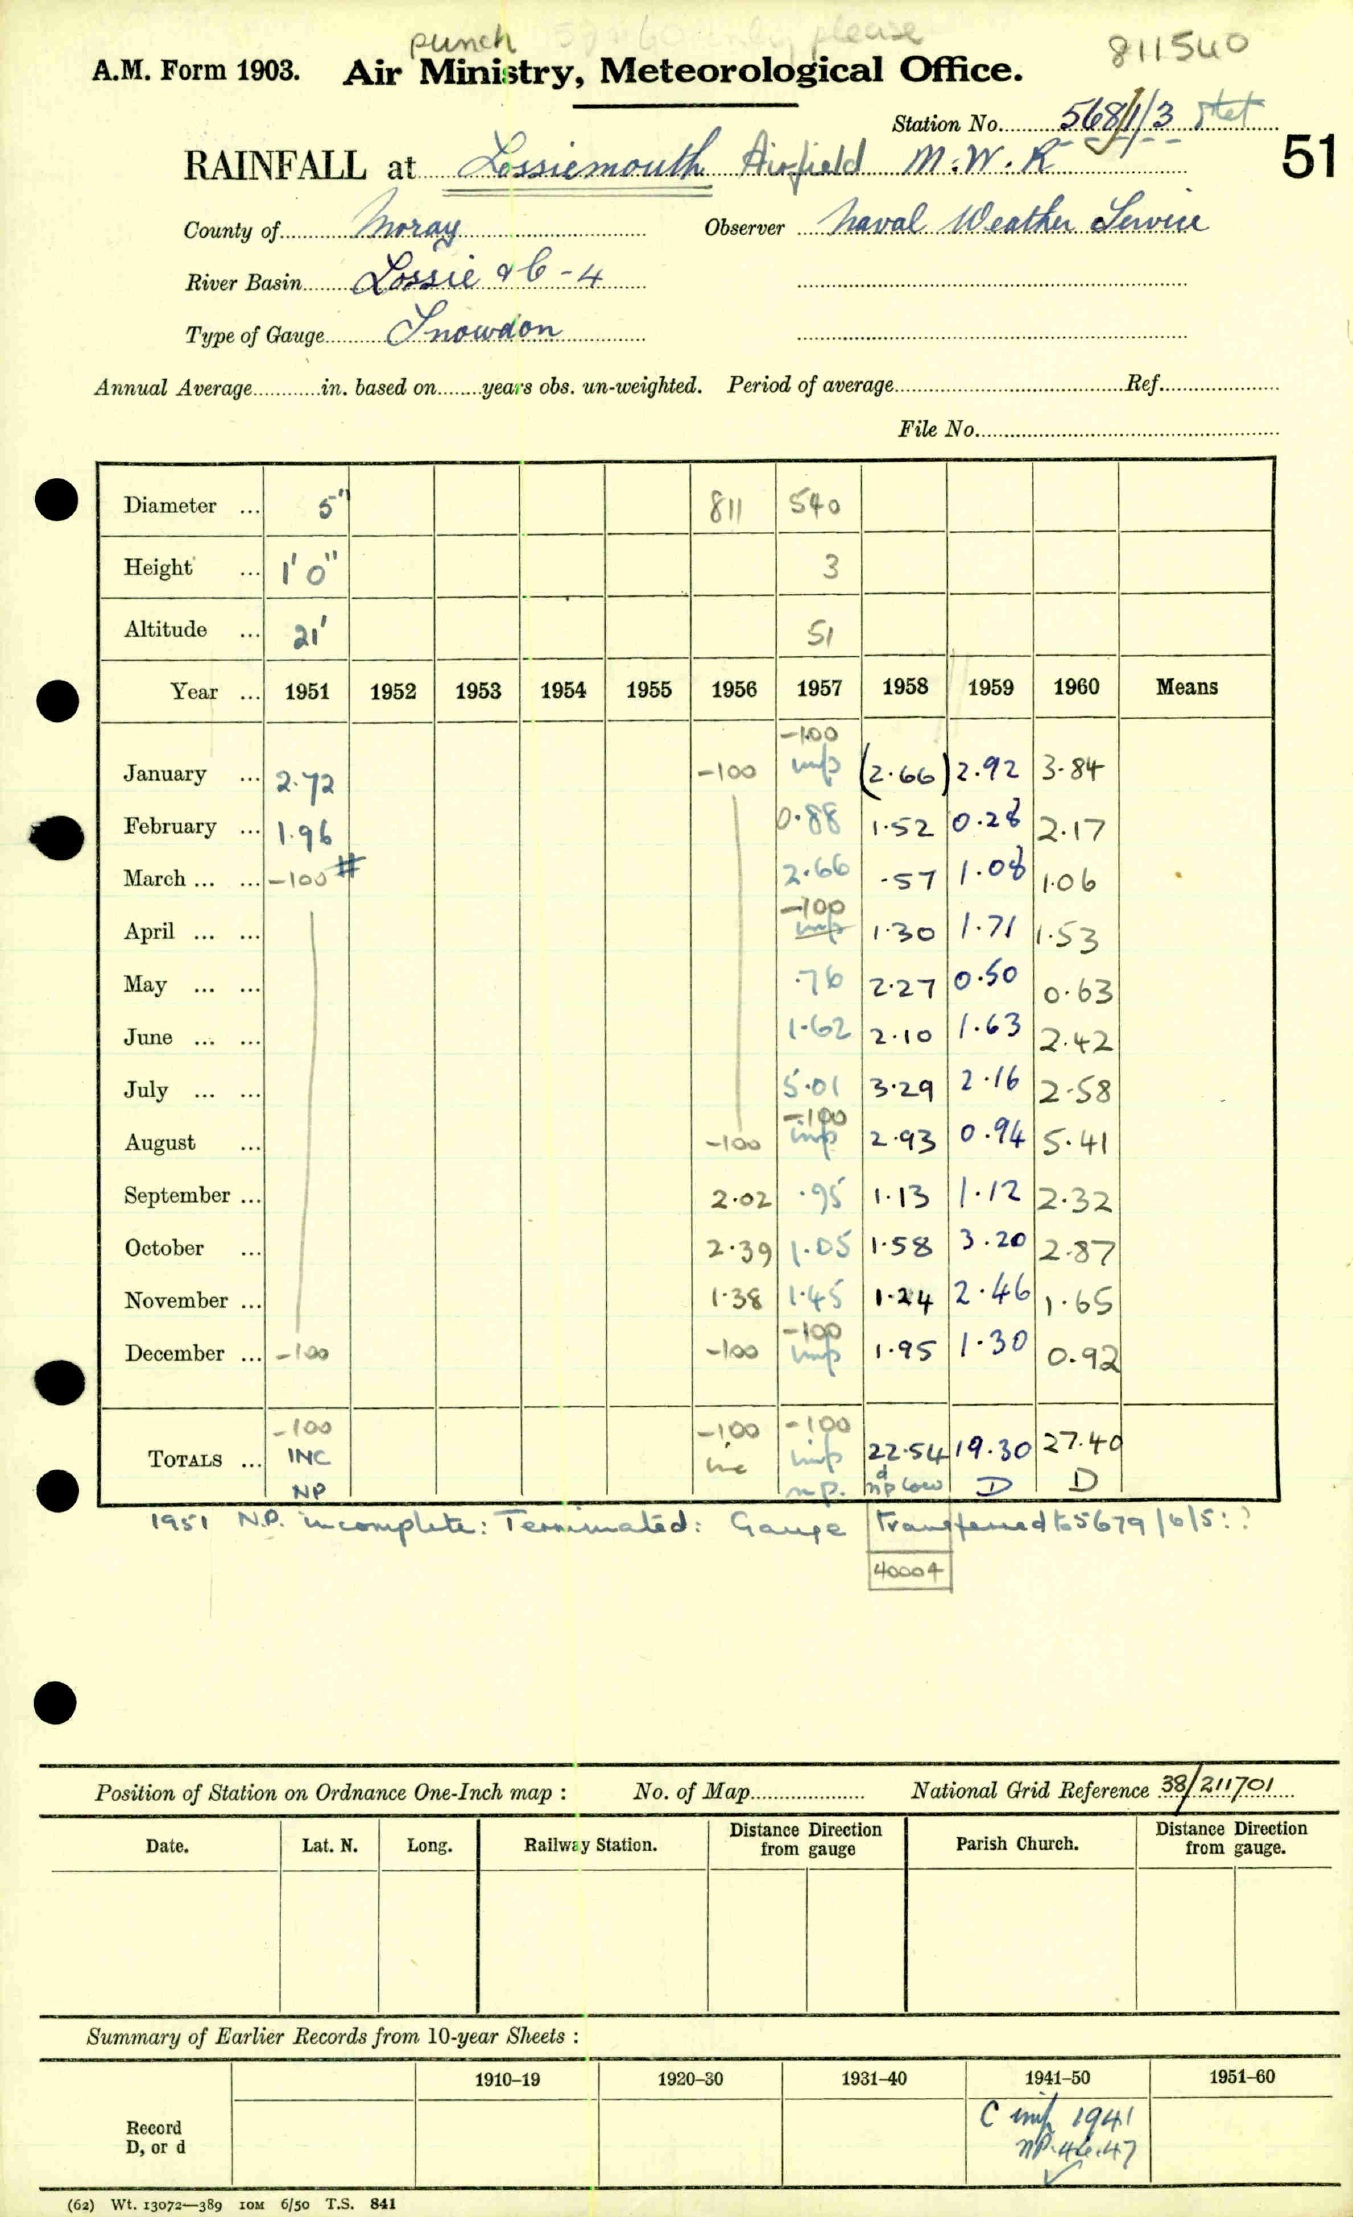 punch 57 & 60 only please
811540
A.M. Form 1903. Air Ministry, Meteorological Office.
Station No. 568/1/3 stet
RAINFALL at Lossiemouth Airfield M.W.R
51
County of Moray Observer Naval Weather Service
River Basin Lossie & C-4
Type of Gauge Snowdon
Annual Average in. based on years obs. un-weighted. Period of average Ref.
File No.
Diameter ... 5" 811 540
Height ... 1' 0" 3
Altitude ... 21' 51
Year ... 1951 1952 1953 1954 1955 1956 1957 1958 1959 1960 Means
-100
January ... 2.72 -100 imp (2.66) 2.92 3.84
February ... 1.96 0.88 1.52 0.28 2.17
March ... ... -100 # 2.66 .57 1.08 1.06
-100
April ... ... imp 1.30 1.71 1.53
May ... ... .76 2.27 0.50 0.63
June ... ... 1.62 2.10 1.63 2.42
July ... ... 5.01 3.29 2.16 2.58
-100
August ... -100 imp 2.93 0.94 5.41
September ... 2.02 .95 1.13 1.12 2.32
October ... 2.39 1.05 1.58 3.20 2.87
November ... 1.38 1.45 1.24 2.46 1.65
-100
December ... -100 -100 imp 1.95 1.30 0.92
-100 -100 -100
TOTALS ... INC inc imp 22.54 19.30 27.40
NP n.p. d np low D D
1951 N.P. incomplete: Terminated: Gauge transferred to 5679/6/5: ?
40004
Position of Station on Ordnance One-Inch map : No. of Map National Grid Reference 38/211701
Date. Lat. N. Long. Railway Station. Distance Direction from gauge Parish Church. Distance Direction from gauge.
Summary of Earlier Records from 10-year Sheets :
1910–19 1920–30 1931–40 1941–50 1951–60
Record
D, or d
C imp 1941
NP. 46.47
(62) Wt. 13072—389 10M 6/50 T.S. 841